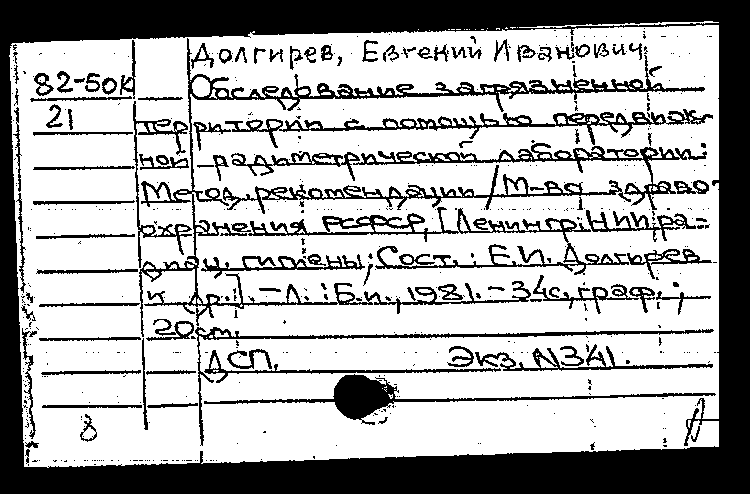 Долгирев, Евгений Иванович
82-50к Обследование загрязненной
21 территории с помощью передвиж-
ной радиметрической лаборатории:
Метод. рекомендации / М-во здраво-
охранения РСФСР, [Ленингр. НИИ ра-
диац. гигиены; Сост.: Е.И. Долгирев
и др.]. - Л.: Б.и., 1981. - 34с., граф.;
20см.
ДСП. Экз. N341.
8 А